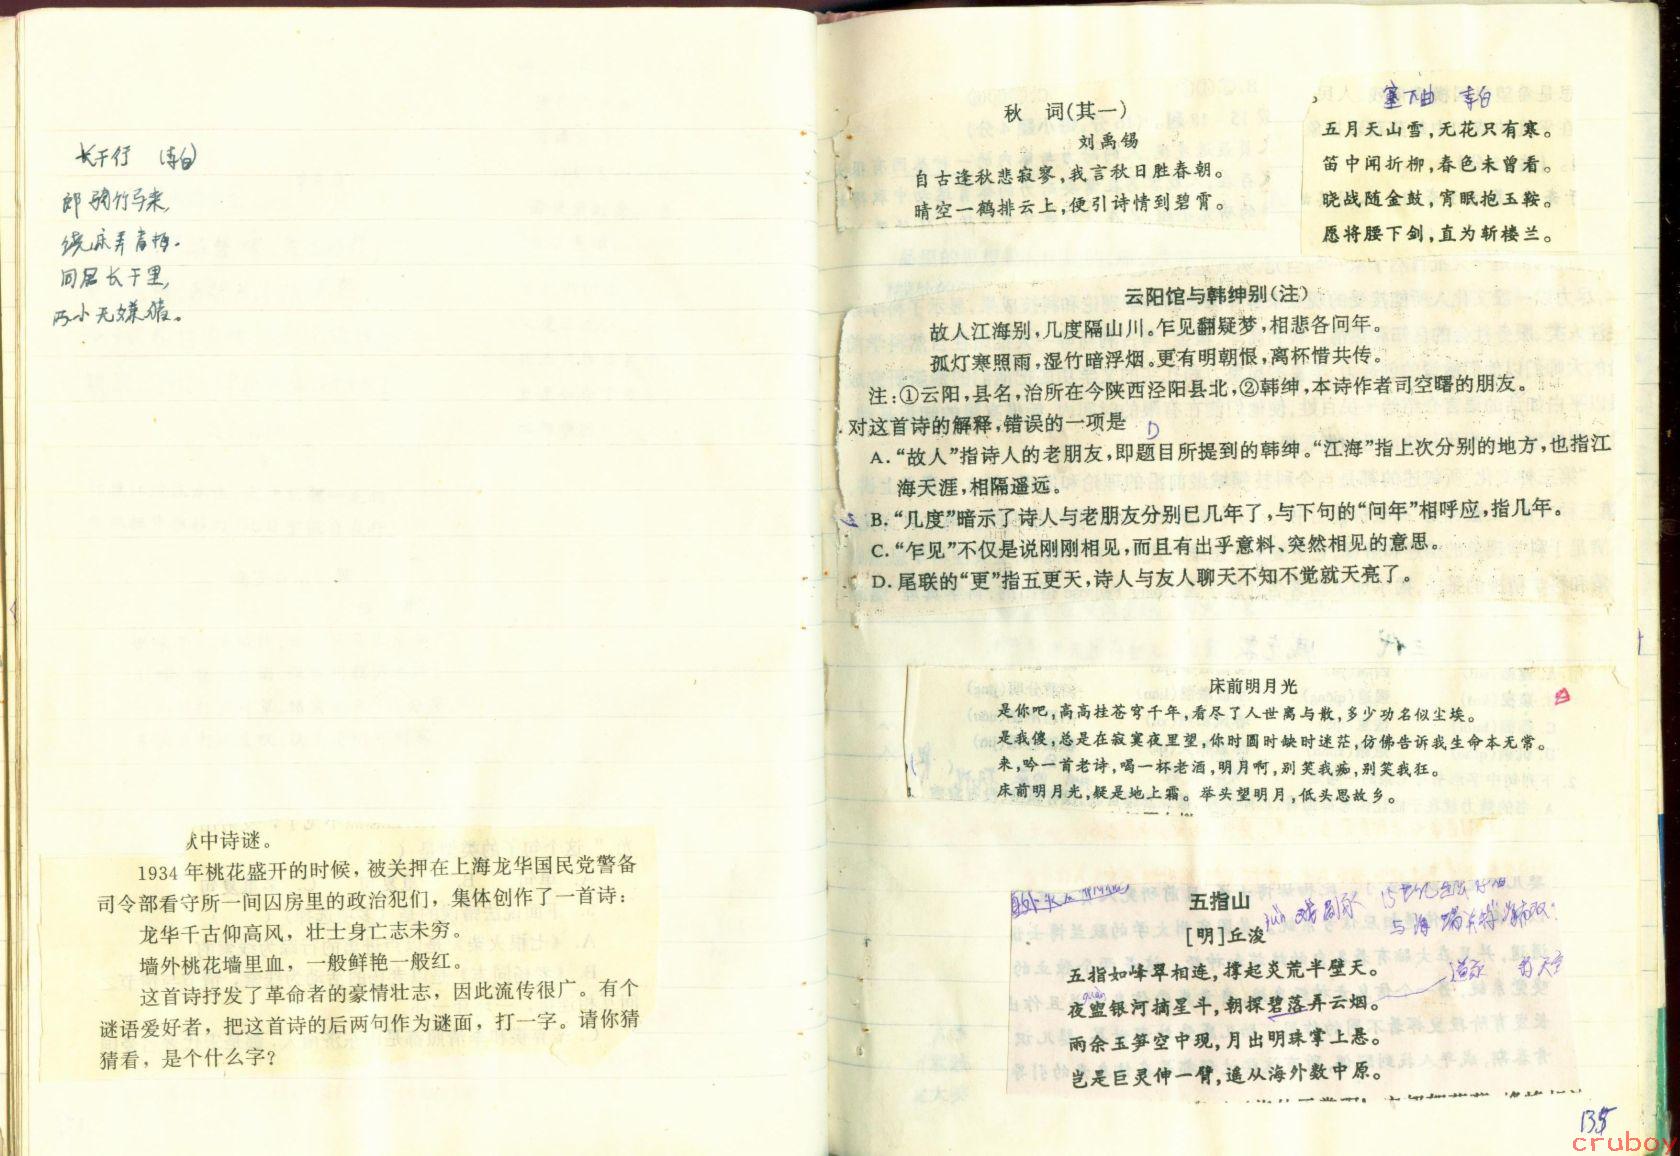 长干行 李白
郎骑竹马来,
绕床弄青梅.
同居长干里,
两小无嫌猜。
狱中诗谜。
1934年桃花盛开的时候，被关押在上海龙华国民党警备
司令部看守所一间囚房里的政治犯们，集体创作了一首诗：
龙华千古仰高风，壮士身亡志未穷。
墙外桃花墙里血，一般鲜艳一般红。
这首诗抒发了革命者的豪情壮志，因此流传很广。有个
谜语爱好者，把这首诗的后两句作为谜面，打一字。请你猜
猜看，是个什么字？
秋 词(其一)
刘禹锡
自古逢秋悲寂寥,我言秋日胜春朝。
晴空一鹤排云上,便引诗情到碧霄。
塞下曲 李白
五月天山雪,无花只有寒。
笛中闻折柳,春色未曾看。
晓战随金鼓,宵眠抱玉鞍。
愿将腰下剑,直为斩楼兰。
云阳馆与韩绅别(注)
故人江海别,几度隔山川。乍见翻疑梦,相悲各问年。
孤灯寒照雨,湿竹暗浮烟。更有明朝恨,离杯惜共传。
注:①云阳,县名,治所在今陕西泾阳县北,②韩绅,本诗作者司空曙的朋友。
对这首诗的解释,错误的一项是 D
A.“故人”指诗人的老朋友,即题目所提到的韩绅。“江海”指上次分别的地方,也指江
海天涯,相隔遥远。
B.“几度”暗示了诗人与老朋友分别已几年了,与下句的“问年”相呼应,指几年。
C.“乍见”不仅是说刚刚相见,而且有出乎意料、突然相见的意思。
D.尾联的“更”指五更天,诗人与友人聊天不知不觉就天亮了。
床前明月光
是你吧,高高挂苍穹千年,看尽了人世离与散,多少功名似尘埃。
是我傻,总是在寂寞夜里望,你时圆时缺时迷茫,仿佛告诉我生命本无常。
来,吟一首老诗,喝一杯老酒,明月啊,别笑我痴,别笑我狂。
床前明月光,疑是地上霜。举头望明月,低头思故乡。
五指山
[明]丘浚
五指如峰翠相连,撑起炎荒半壁天。
夜盥银河摘星斗,朝探碧落弄云烟。
guàn
雨余玉笋空中现,月出明珠掌上悬。
岂是巨灵伸一臂,遥从海外数中原。
135
cruboy